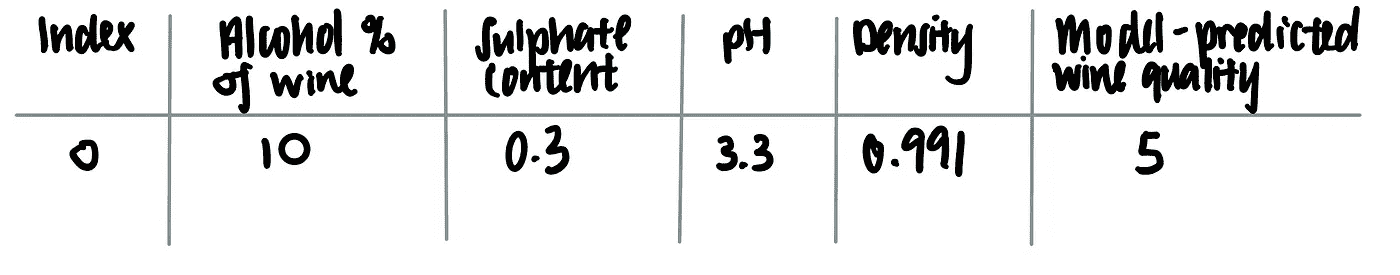 Index Alcohol % of wine Sulphate content pH Density Model-predicted wine quality
0 10 0.3 3.3 0.991 5